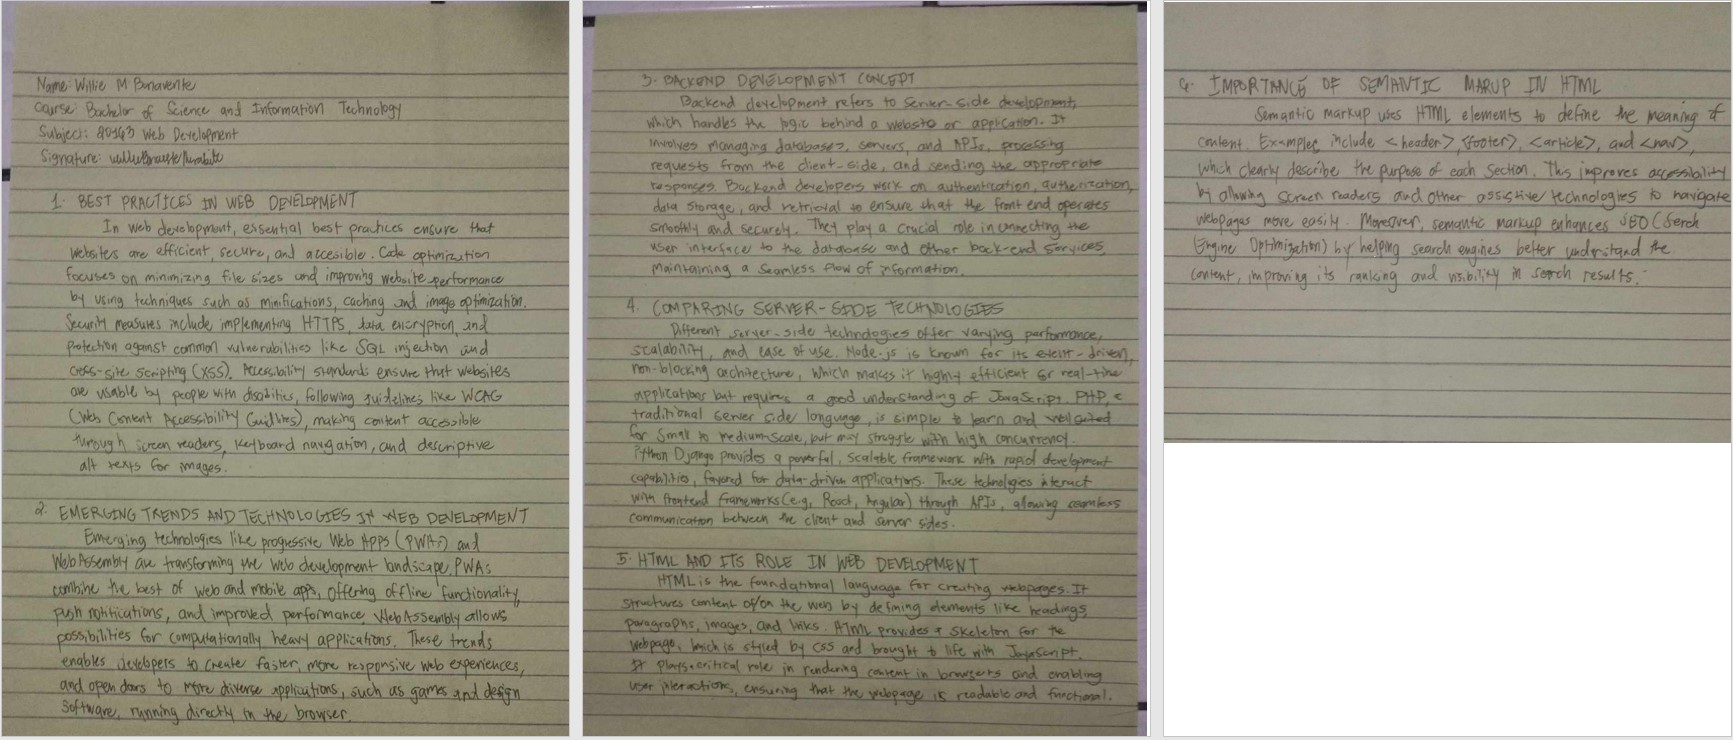 Name: Willie M Bonavente
Course: Bachelor of Science and Information Technology
Subject: 20143 Web Development
Signature:
1. BEST PRACTICES IN WEB DEVELOPMENT
In web development, essential best practices ensure that
websites are efficient, secure, and accesible. Code optimization
focuses on minimizing file sizes and improving website performance
by using techniques such as minifications, caching and image optimization.
Security measures include implementing HTTPS, data encryption, and
protection against common vulnerabilities like SQL injection and
cross-site scripting (XSS). Accessibility standards ensure that websites
are usable by people with disabilities, following guidelines like WCAG
(Web Content Accessibility Guidlines), making content accessible
through screen readers, keyboard navigation, and descriptive
alt texts for images.
2. EMERGING TRENDS AND TECHNOLOGIES IN WEB DEVELOPMENT
Emerging technologies like progressive Web Apps (PWAs) and
WebAssembly are transforming the web development landscape. PWAs
combine the best of web and mobile apps, offering offline functionality,
push notifications, and improved performance. WebAssembly allows
possibilities for computationally heavy applications. These trends
enables developers to create faster, more responsive web experiences,
and open doors to more diverse applications, such as games and design
software, running directly in the browser.
3. BACKEND DEVELOPMENT CONCEPT
Backend development refers to server-side development,
which handles the logic behind a website or application. It
involves managing databases, servers, and APIs, processing
requests from the client-side, and sending the appropriate
responses. Backend developers work on authentication, authorization,
data storage, and retrieval to ensure that the front end operates
smoothly and securely. They play a crucial role in connecting the
user interface to the database and other back-end services,
maintaining a seamless flow of information.
4. COMPARING SERVER-SIDE TECHNOLOGIES
Different server-side technologies offer varying performance,
scalability, and ease of use. Node.js is known for its event-driven,
non-blocking architecture, which makes it highly efficient for real-time
applications but requires a good understanding of JavaScript. PHP, a
traditional server side language, is simple to learn and well suited
for small to medium-scale, but may struggle with high concurrency.
Python Django provides a powerful, scalable framework with rapid development
capabilities, favored for data-driven applications. These technologies interact
with frontend frameworks (e.g., React, Angular) through APIs, allowing seamless
communication between the client and server sides.
5. HTML AND ITS ROLE IN WEB DEVELOPMENT
HTML is the foundational language for creating webpages. It
structures content of/on the web by defining elements like headings,
paragraphs, images, and links. HTML provides a skeleton for the
webpage, which is styled by CSS and brought to life with JavaScript.
It plays critical role in rendering content in browsers and enabling
user interactions, ensuring that the webpage is readable and functional.
6. IMPORTANCE OF SEMANTIC MARUP IN HTML
Semantic markup uses HTML elements to define the meaning of
content. Examples include <header>, <footer>, <article>, and <nav>,
which clearly describe the purpose of each section. This improves accessibility
by allowing screen readers and other assistive technologies to navigate
webpages more easily. Moreover, semantic markup enhances SEO (Serch
Engine Optimization) by helping search engines better understand the
content, improving its ranking and visibility in search results.